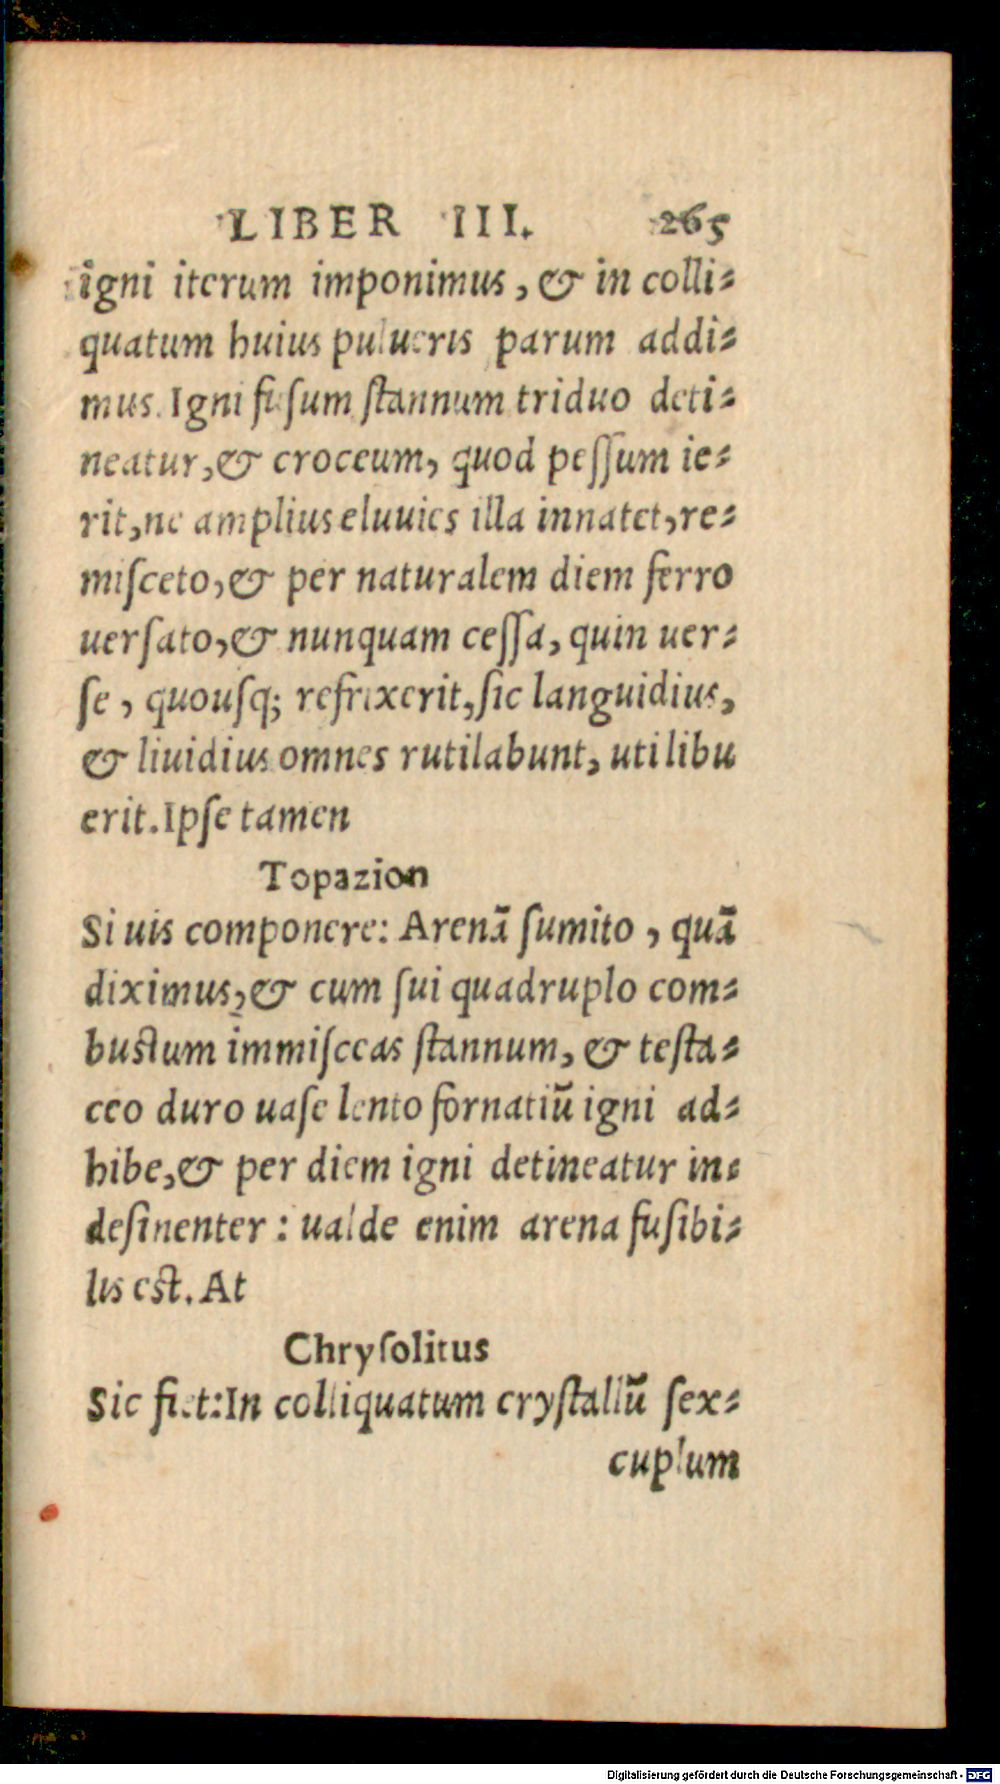 LIBER III. 265
igni iterum imponimus, & in colli-
quatum huius pulueris parum addi-
mus. Igni fusum ſtannum triduo deti-
neatur, & croceum, quod peſſum ie-
rit, ne amplius eluuies illa innatet, re-
miſceto, & per naturalem diem ferro
uerſato, & nunquam ceſſa, quin uer-
ſe, quouſq; refrixerit, ſic languidius,
& liuidius omnes rutilabunt, uti libu
erit. Ipſe tamen
Topazion
Si uis componere: Arenā ſumito, quā
diximus, & cum ſui quadruplo com-
buſtum immiſceas ſtannum, & teſta-
ceo duro uaſe lento fornatiū igni ad-
hibe, & per diem igni detineatur in-
deſinenter: ualde enim arena fuſibi-
lis eſt. At
Chryſolitus
Sic fiet: In colliquatum cryſtallū ſex-
cuplum
Digitalisierung gefördert durch die Deutsche Forschungsgemeinschaft - DFG